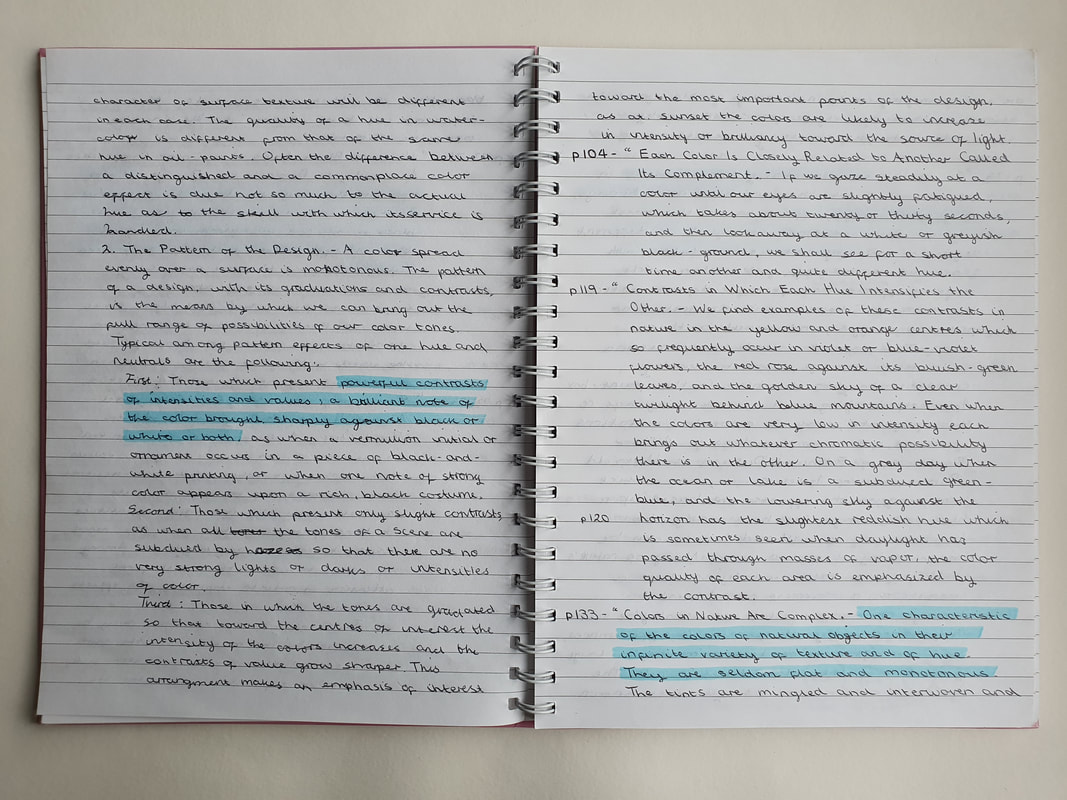 character of surface texture will be different
in each case. The quality of a hue in water-
color is different from that of the same
hue in oil-paints. Often the difference between
a distinguished and a commonplace color
effect is due not so much to the actual
hue as to the skill with which its service is
handled.
2. The Pattern of the Design. - A color spread
evenly over a surface is monotonous. The pattern
of a design, with its graduations and contrasts,
is the means by which we can bring out the
full range of possibilities of our color tones.
Typical among pattern effects of one hue and
neutrals are the following:
First: Those which present powerful contrasts
of intensities and values; a brilliant note of
the color brought sharply against black or
white or both, as when a vermillion initial or
ornament occurs in a piece of black-and-
white printing, or when one note of strong
color appears upon a rich, black costume.
Second: Those which present only slight contrasts,
as when all tones the tones of a scene are
subdued by hazess so that there are no
very strong lights or darks or intensities
of color.
Third: Those in which the tones are graduated
so that toward the centres of interest the
intensity of the colors increases and the
contrasts of value grow sharper. This
arrangment makes an emphasis of interest
toward the most important points of the design,
as at sunset the colors are likely to increase
in intensity or brilliancy toward the source of light.
p104 - " Each Color Is Closely Related to Another Called
Its Complement. - If we gaze steadily at a
color until our eyes are slightly fatigued,
which takes about twenty or thirty seconds,
and then look away at a white or greyish
black-ground, we shall see for a short
time another and quite different hue.
p119 - " Contrasts in Which Each Hue Intensifies the
Other. - We find examples of these contrasts in
nature in the yellow and orange centres which
so frequently occur in violet or blue-violet
flowers, the red rose against its bluish-green
leaves, and the golden sky of a clear
twilight behind blue mountains. Even when
the colors are very low in intensity each
brings out whatever chromatic possibility
there is in the other. On a grey day when
the ocean or lake is a subdued green-
blue, and the lowering sky against the
p120 horizon has the slightest reddish hue which
is sometimes seen when daylight has
passed through masses of vapor, the color
quality of each area is emphasized by
the contrast.
p133 - " Colors in Nature Are Complex. - One characteristic
of the colors of natural objects in their
infinite variety of texture and of hue.
They are seldom flat and monotonous
The tints are mingled and interwoven and